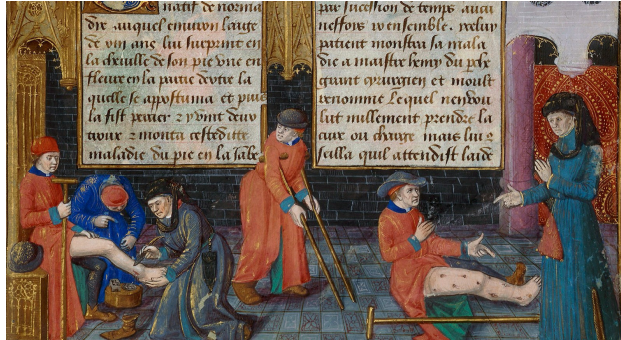 natif de norma
die auquel environ laage
de viii ans lui surprint en
la cheuille de son pie vne en
fleure en la partie dextre la
quelle se apostuma et puis
la fist percer & y vint deux
troux & monta cestedite
maladie du pie en la Jabe
par sucession de temps aucu
neffois ensemble.
patient monstra sa mala
die a maistre henry du
grant cyrurgien et moult
renomme Lequel nen vou
lut nullement prendre la
cure ou charge mais lui
seilla quil attendist laide